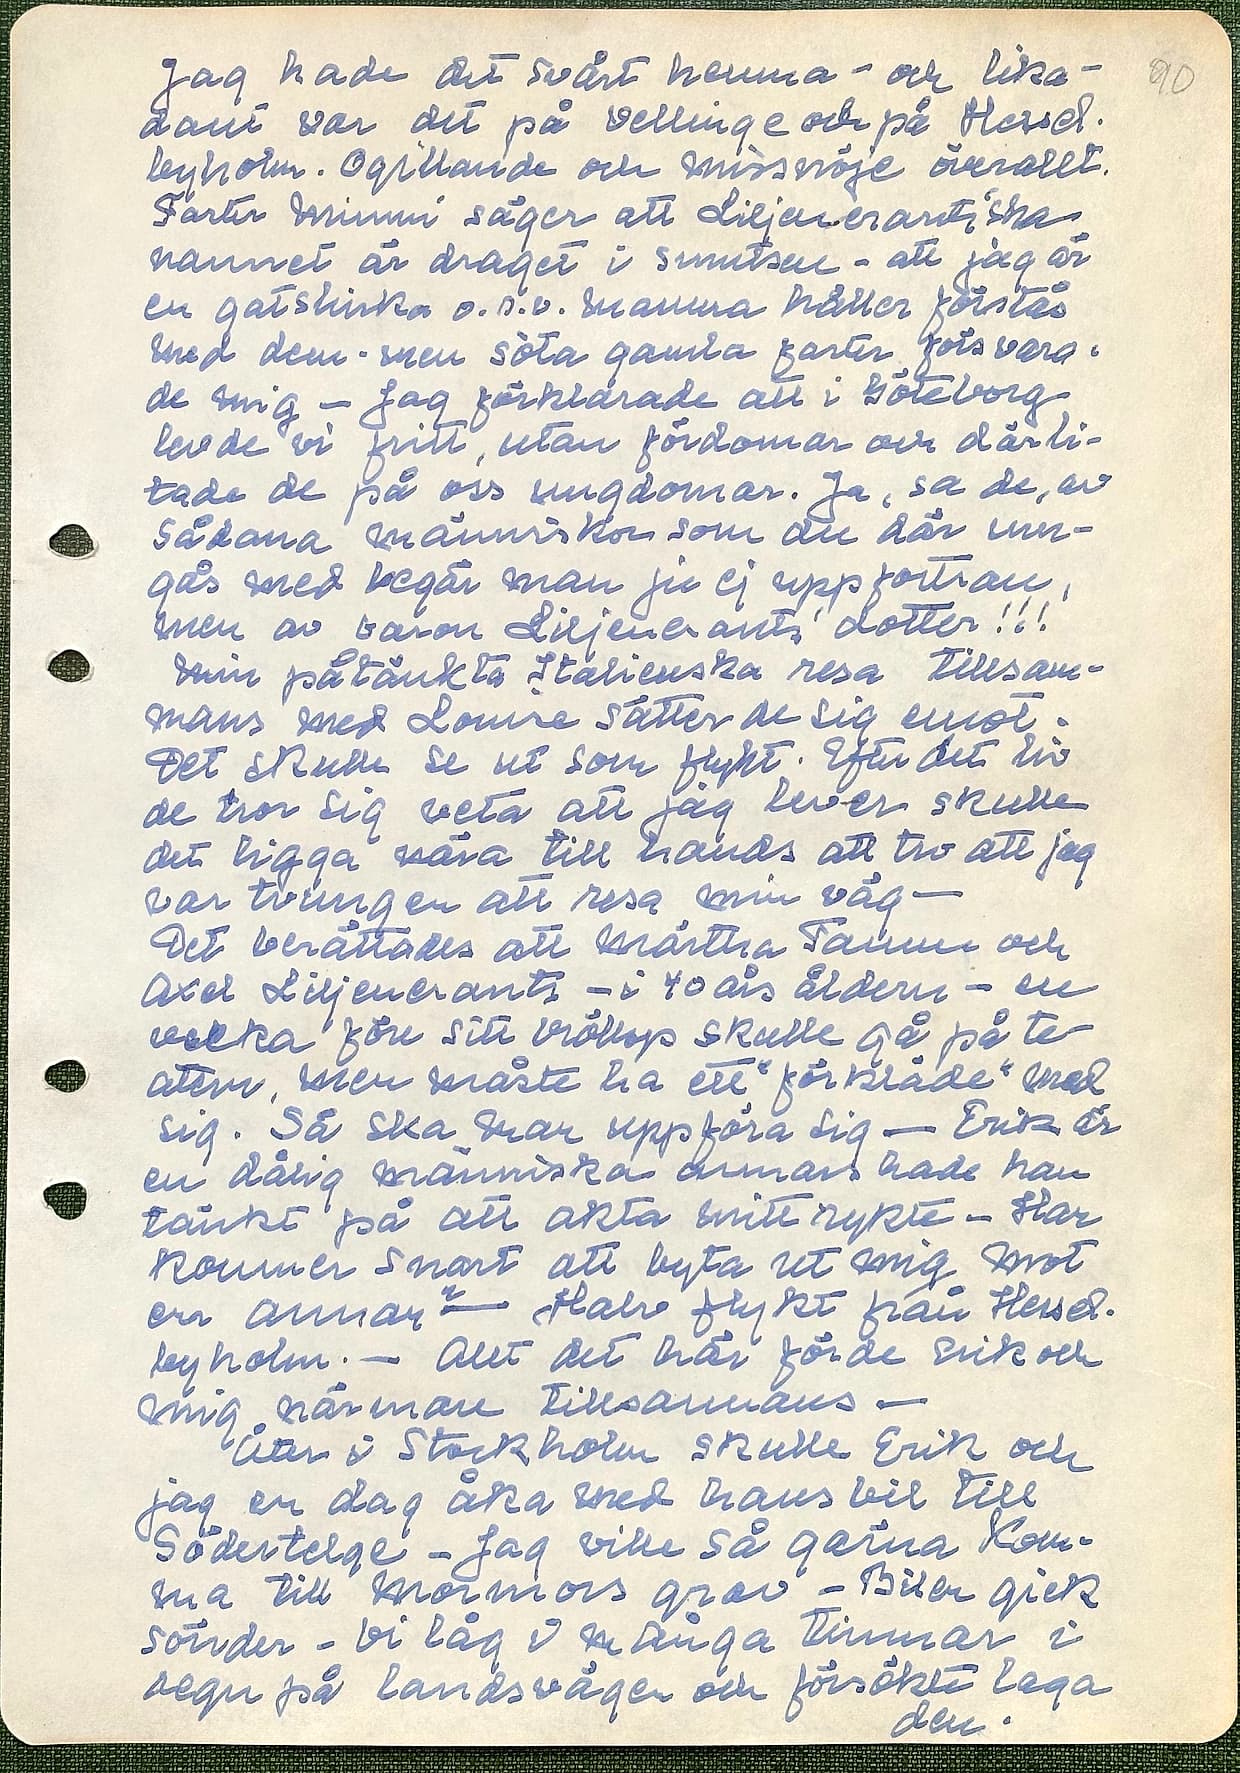 90
Jag hade det svårt hemma - och lika-
dant var det på Vellinge och på Hessel-
byholm. Ogillande och missnöje överallt.
Faster Mimmi säger att Liljencrantz'ska
namnet är draget i smutsen - att jag är
en gatslinka o.s.v. Mamma håller förstås
med dem - men söta gamla faster försvara-
de mig - Jag förklarade att i Göteborg
levde vi fritt, utan fördomar och där li-
tade de på oss ungdomar. Ja, sa de, av
sådana människor som du där um-
gås med begär man ju ej uppfostran,
men av baron Liljencrants' dotter!!!
Min påtänkta Italienska resa tillsam-
mans med Louise sätter de sig emot.
Det skulle se ut som flykt. Efter det liv
de tror sig veta att jag lever skulle
det ligga nära till hands att tro att jag
var tvungen att resa min väg -
Det berättades att Märtha Tamm och
Axel Liljencrantz - i 40 års åldern - en
vecka före sitt bröllop skulle gå på te-
atern, men måste ha ett "förkläde" med
sig. Så ska man uppföra sig - Erik är
en dålig människa annars hade han
tänkt på att akta mitt rykte - Han
kommer snart att byta ut mig mot
en annan" - Halv flykt från Hessel-
byholm. - Allt det här förde Erik och
mig närmare tillsammans -
Åter i Stockholm skulle Erik och
jag en dag åka med hans bil till
Södertelge - Jag ville så gärna kom-
ma till Mormors grav - Bilen gick
sönder - Vi låg i många timmar i
regn på landsvägen och försökte laga
den.